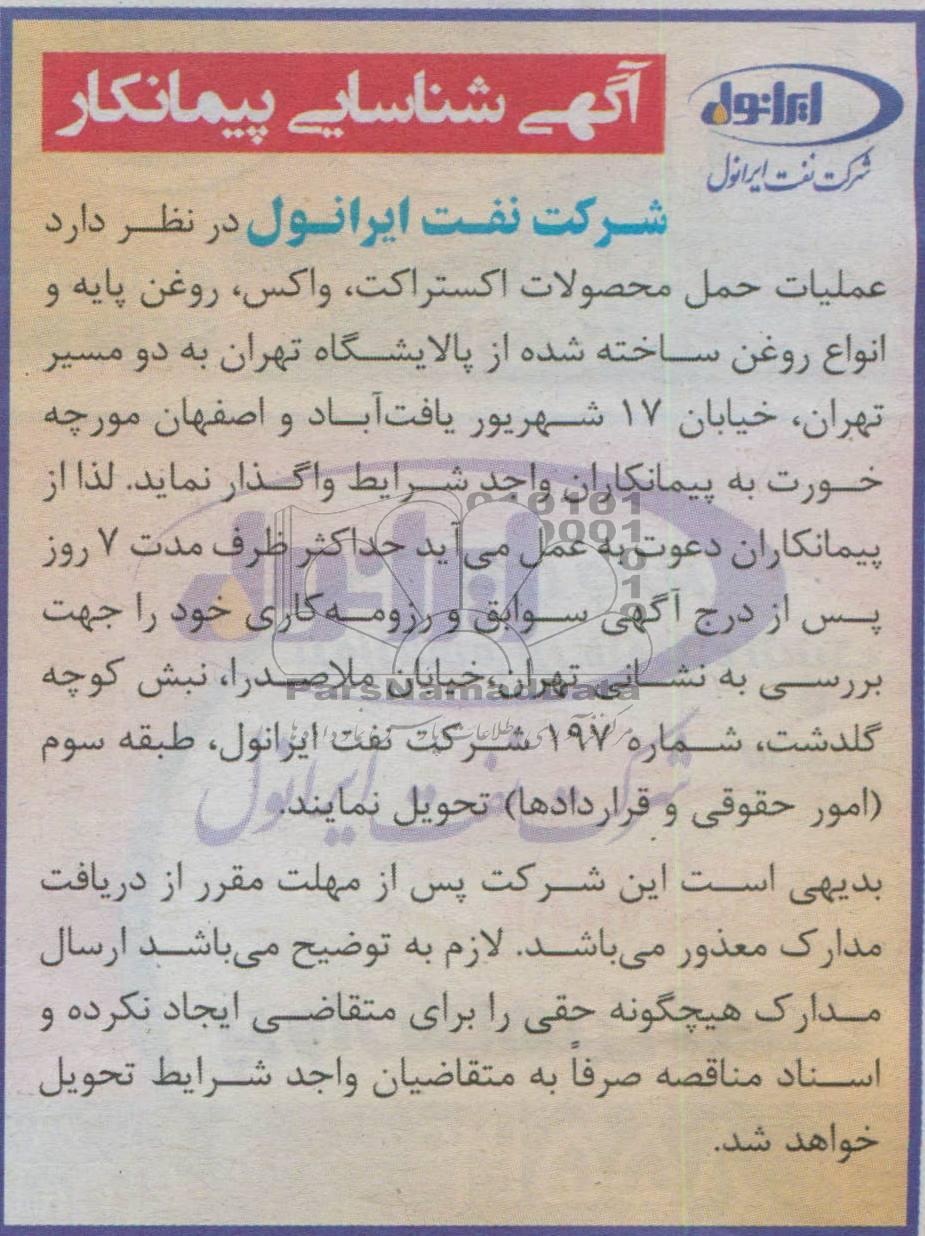 آگهی شناسایی پیمانکار
ایرانول
شرکت نفت ایرانول
شرکت نفت ایرانول در نظر دارد
عملیات حمل محصولات اکستراکت، واکس، روغن پایه و
انواع روغن ساخته شده از پالایشگاه تهران به دو مسیر
تهران، خیابان ۱۷ شهریور یافت‌آباد و اصفهان مورچه
خورت به پیمانکاران واجد شرایط واگذار نماید. لذا از
پیمانکاران دعوت به عمل می‌آید حداکثر ظرف مدت ۷ روز
پس از درج آگهی سوابق و رزومه‌کاری خود را جهت
بررسی به نشانی تهران،خیابان ملاصدرا، نبش کوچه
گلدشت، شماره ۱۹۷ شرکت نفت ایرانول، طبقه سوم
(امور حقوقی و قراردادها) تحویل نمایند.
بدیهی است این شرکت پس از مهلت مقرر از دریافت
مدارک معذور می‌باشد. لازم به توضیح می‌باشد ارسال
مدارک هیچگونه حقی را برای متقاضی ایجاد نکرده و
اسناد مناقصه صرفاً به متقاضیان واجد شرایط تحویل
خواهد شد.
ایرانول
شرکت نفت ایرانول
ParsNamadData